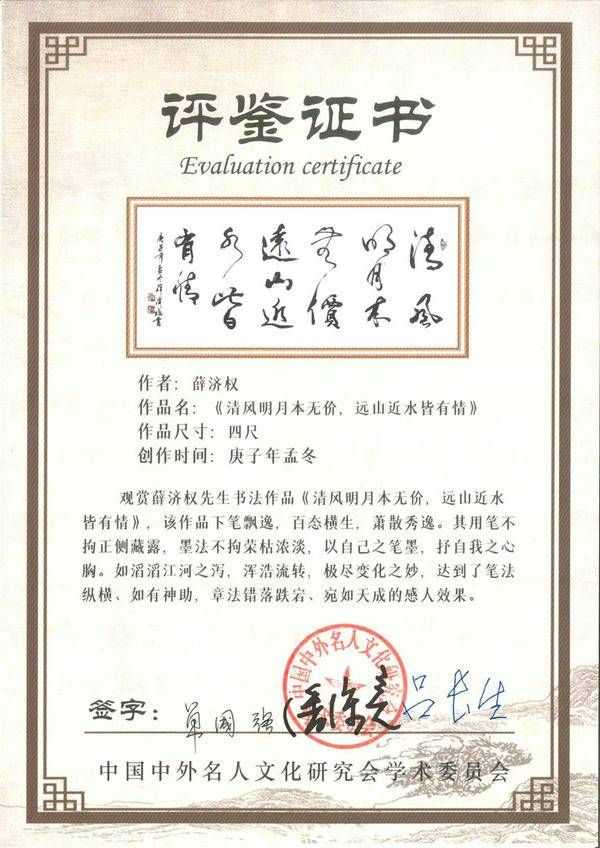 评鉴证书
Evaluation certificate
清风
明月本
无價
遠山近
水皆
有情
作者：薛济权
作品名：《清风明月本无价，远山近水皆有情》
作品尺寸：四尺
创作时间：庚子年孟冬
观赏薛济权先生书法作品《清风明月本无价，远山近水
皆有情》，该作品下笔飘逸，百态横生，萧散秀逸。其用笔不
拘正侧藏露，墨法不拘荣枯浓淡，以自己之笔墨，抒自我之心
胸。如滔滔江河之泻，浑浩流转，极尽变化之妙，达到了笔法
纵横、如有神助，章法错落跌宕、宛如天成的感人效果。
中国中外名人文化研究会
签字：单國强 潘深亮 吕长生
中国中外名人文化研究会学术委员会